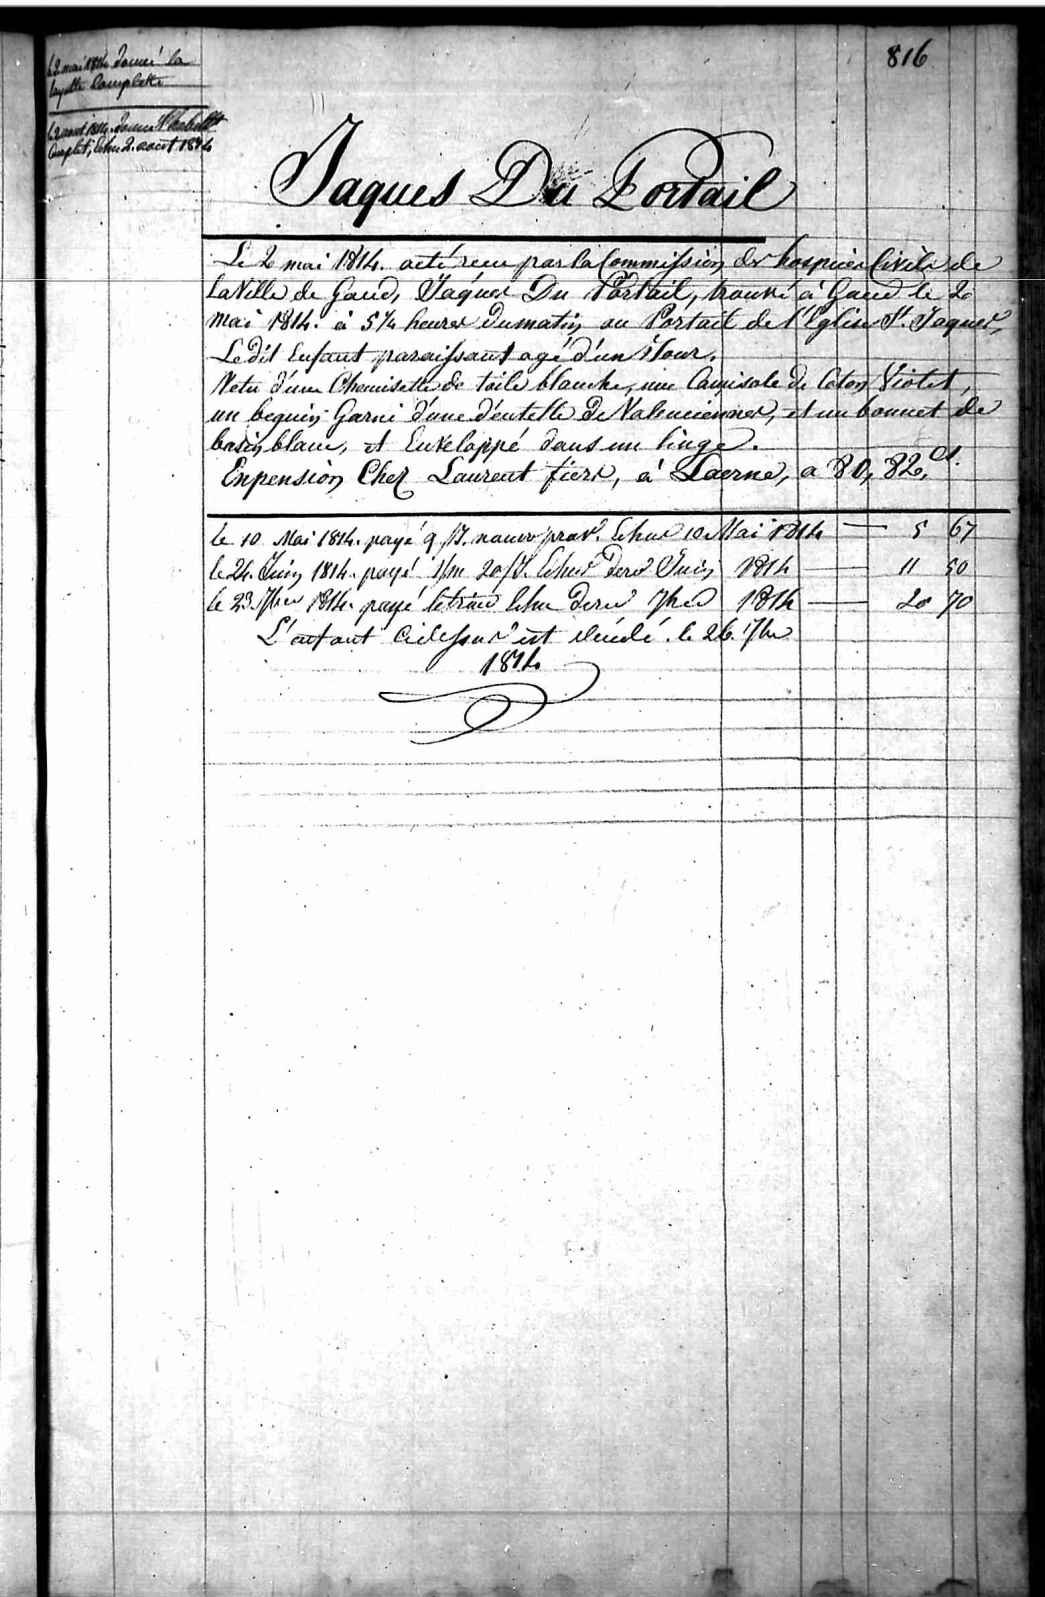 816
Le 2 mai 1814 donné la
layette complette
Le 2 aout 1814. donné l'habillt
complet, Echu 2. aout 1814
Jaques Du Portail
Le 2 mai 1814. a été recu par la Commission des hospices Civils de
la Ville de Gand, Jaques Du Portail, trouvé à Gand le 2
mai 1814. à 5 1/4 heures du matin au Portail de l'Eglise St. Jaques,
Ledit Enfant paraissant agé d'un Jour.
Vetu d'une Chemisette de toile blanche, une Camisole de Coton Violet,
un beguin Garni d'une dentelle De Valenciennes, et un bonnet de
basin blanc, et Enveloppé dans un linge.
En pension Chez Laurent fiers, à Laerne, a 80, 82, Cs.
le 10 Mai 1814. payé 9 Echus 10 Mai 1814 — 5 67
le 24 Juin 1814. payé 1/m 20/J. Echus Dero Juin 1814 — 11 50
le 23 7bre 1814. payé le trime Echu Dero 7bre 1814 — 20 70
L'enfant Cidessus est décédé le 26 7bre
1814